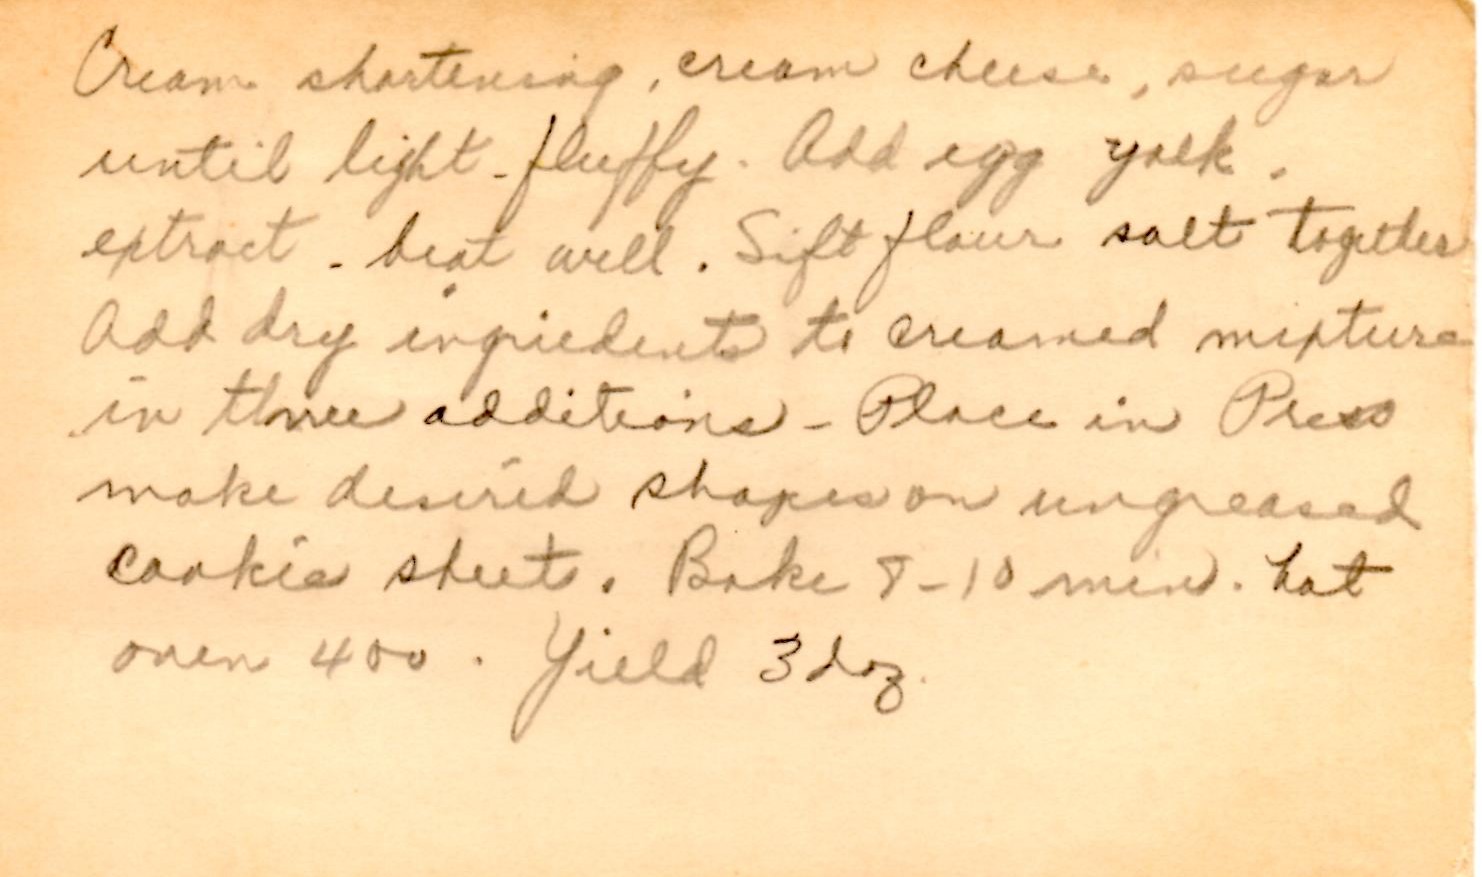 Cream shortening, cream cheese, sugar
until light - fluffy. Add egg yolk,
extract - beat well. Sift flour salt together
Add dry ingriedents to creamed mixture
in three additions - Place in Press
make desired shapes on ungreased
cookie sheet. Bake 8-10 min. hot
oven 400. Yield 3 doz.